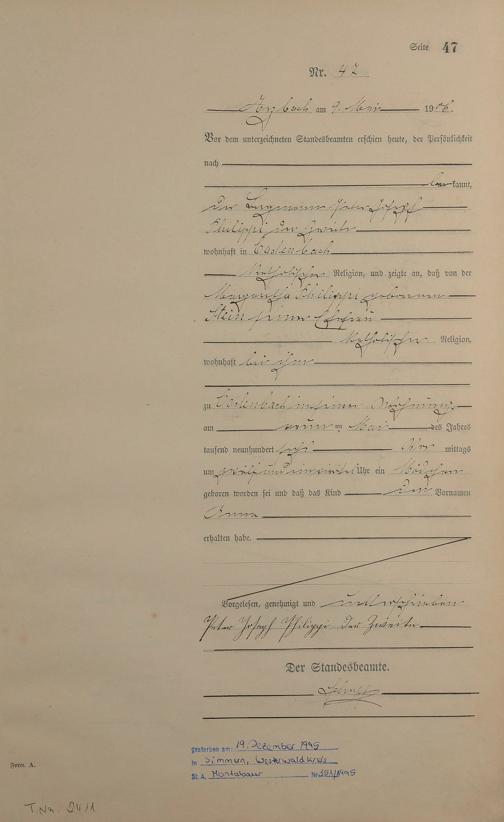 Seite 47
Nr. 42
Arzbach am 9. Mai 1906.
Vor dem unterzeichneten Standesbeamten erschien heute, der Persönlichkeit
nach
be kannt,
der Bergmann Peter Joseph
Philippi der Zweite
wohnhaft in Cadenbach
katholischer Religion, und zeigte an, daß von der
Margaretha Philippi geborenen
Stein seiner Ehefrau
katholischer Religion,
wohnhaft bei ihm
zu Cadenbach in seiner Wohnung
am neun ten Mai des Jahres
tausend neunhundert sechs Vor mittags
um Uhr ein Mädchen
geboren worden sei und daß das Kind den Vornamen
Anna
erhalten habe.
Vorgelesen, genehmigt und unterschrieben
Peter Joseph Philippi der Zweite
Der Standesbeamte.
Gestorben am: 19. Dezember 1995
in Simmern, Westerwaldkreis
St. A. Montabaur Nr. 381/1995
Form. A.